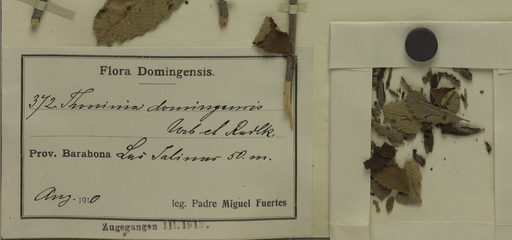 Flora Domingensis.
372. Thouinia domingensis
Urb et Radlk.
Prov. Barahona Las Salinas 50. m.
Aug. 1910 leg. Padre Miguel Fuertes
Zugegangen III. 1913.